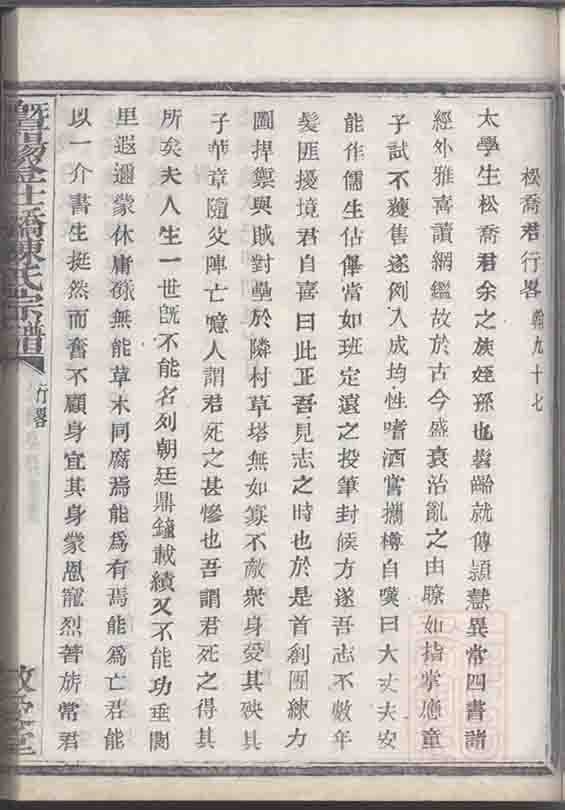 松喬君行畧 翰九十七
太學生松喬君余之族姪孫也髫齡就傳頴慧異常四書諸
經外雅喜讀綱鑑故於古今盛衰治亂之由瞭如指掌應童
子試不獲售遂例入成均性嗜酒嘗攜樽自嘆曰大丈夫安
能作儒生佔俾當如班定遠之投筆封候方遂吾志不數年
髮匪擾境君自喜曰此正吾見志之時也於是首創團練力
圖捍禦與賊對壘於隣村草塔無如寡不敵衆身受其殃其
子華章隨父陣亡噫人謂君死之甚慘也吾謂君死之得其
所矣夫人生一世旣不能名列朝廷鼎鐘載績又不能功垂閭
里遐邇蒙休庸碌無能草木同腐焉能爲有焉能爲亡君能
以一介書生挺然而奮不顧身宜其身蒙恩寵烈著旂常君
暨陽金士橋陳氏宗譜
行畧